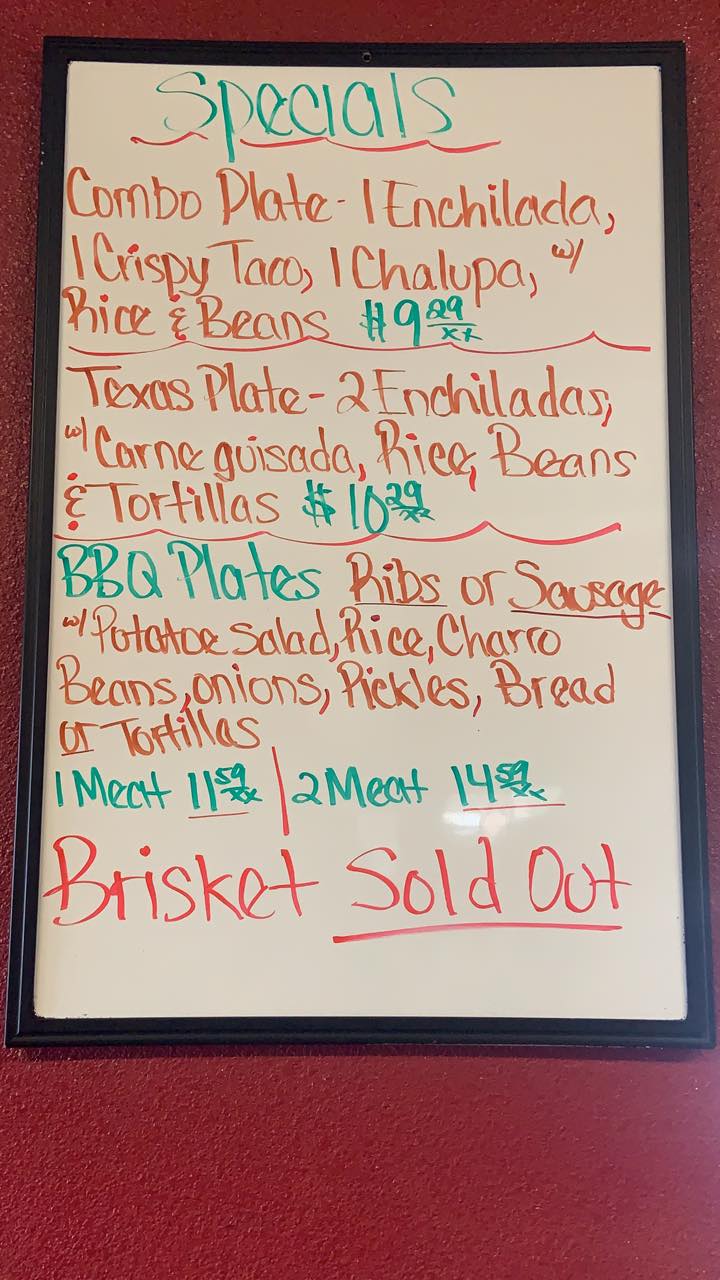 Specials
Combo Plate - 1 Enchilada,
1 Crispy Taco, 1 Chalupa, w/
Rice & Beans $9 29/xx
Texas Plate - 2 Enchiladas,
w/ Carne guisada, Rice, Beans
& Tortillas $10 29/xx
BBQ Plates Ribs or Sausage
w/ Potatoe Salad, Rice, Charro
Beans, onions, Pickles, Bread
or Tortillas
1 Meat 11 59/xx | 2 Meat 14 59/xx
Brisket Sold Out